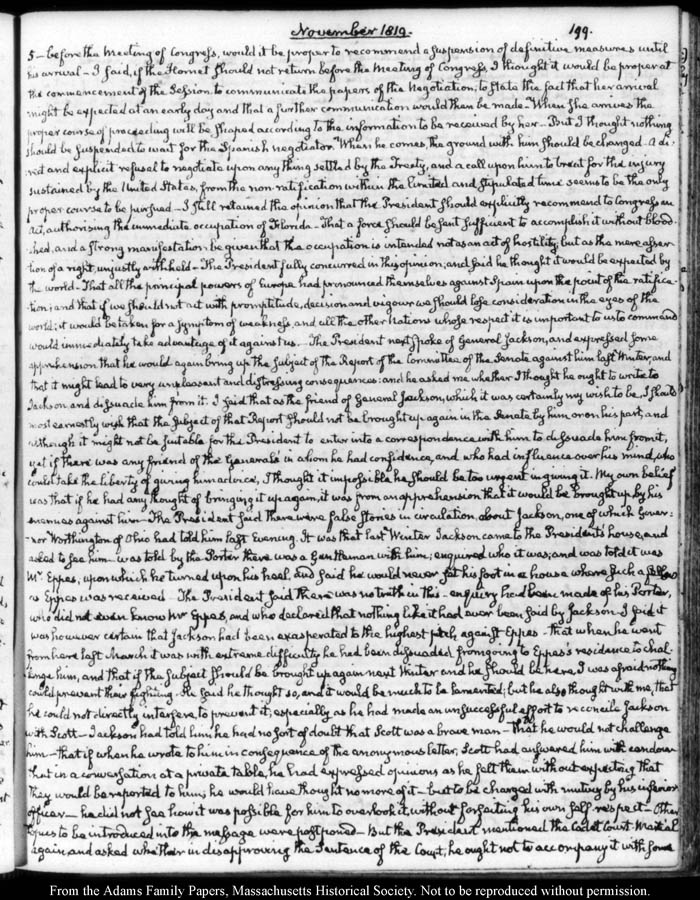 November 1819.
199.
5 — before the Meeting of Congress, would it be proper to recommend a suspension of definitive measures until
his arrival — I said, if the Hornet should not return before the Meeting of Congress, I thought it would be proper at
the commencement of the Session to communicate the papers of the Negotiation; to state the fact that her arrival
might be expected at an early day and that a further communication would then be made — When she arrives the
proper course of proceeding will be shaped according to the information to be received by her — But I thought nothing
should be suspended to wait for the Spanish negotiator. When he comes the ground with him should be changed. A di-
rect and explicit refusal to negotiate upon any thing settled by the Treaty, and a call upon him to treat for the injury
sustained by the United States, from the non-ratification within the limited and stipulated time seems to be the only
proper course to be pursued — I still retained the opinion that the President should explicitly recommend to Congress an
Act, authorising the immediate occupation of Florida — That a force should be sent sufficient to accomplish it without blood-
shed, and a strong manifestation be given that the occupation is intended not as an act of hostility, but as the mere asser-
tion of a right, unjustly withheld — The President fully concurred in this opinion, and said he thought it would be expected by
the world — That all the principal powers of Europe had pronounced themselves against Spain upon the point of the ratifica-
tion; and that if we should not act with promptitude, decision and vigour we should lose consideration in the eyes of the
world; it would be taken for a symptom of weakness, and all the other Nations whose respect it is important to us to command
would immediately take advantage of it against us. — The President next spoke of General Jackson, and expressed some
apprehension that he would again bring up the subject of the Report of the Committee of the Senate against him last Winter, and
that it might lead to very unpleasant and distressing consequences: and he asked me whether I thought he ought to write to
Jackson, and dissuade him from it. I said that as the friend of General Jackson, which it was certainly my wish to be, I should
most earnestly wish that the subject of that Report should not be brought up again in the Senate by him or on his part, and
although it might not be suitable for the President to enter into a correspondence with him to dissuade him from it,
yet if there was any friend of the Generals in whom he had confidence, and who had influence over his mind, who
could take the liberty of giving him advice, I thought it impossible he should be too urgent in giving it. My own belief
was that if he had any thought of bringing it up again, it was from an apprehension that it would be brought up, by his
enemies against him — The President said there were false stories in circulation, about Jackson, one of which Gover-
nor Worthington of Ohio had told him last Evening. It was that last Winter Jackson came to the President's house, and
asked to see him — was told by the Porter there was a Gentleman with him; enquired who it was; and was told it was
Mr Eppes, upon which he turned upon his heel, and said he would never set his foot in a house where such a fellow
as Eppes was received — The President said there was no truth in this — enquiry had been made of his Porter,
who did not even know Mr Eppes, and who declared that nothing like it had ever been said by Jackson. I said it
was however certain that Jackson had been exasperated to the highest pitch, against Eppes — that when he went
from here last March it was with extreme difficulty he had been dissuaded from going to Eppes's residence to chal-
lenge him, and that if the subject should be brought up again next Winter and he should be here, I was afraid nothing
could prevent their fighting. He said he thought so, and it would be much to be lamented; but he also thought with me, that
he could not directly interfere, to prevent it; especially as he had made an unsuccessful effort to reconcile Jackson
with Scott — Jackson had told him he had no sort of doubt that Scott was a brave man — That he would not challenge
him — that if when he wrote to him in consequence of the anonymous letter, Scott had answered him with candour
that in a conversation at a private table, he had expressed opinions as he felt them without expecting that
they would be reported to him, he would have thought no more of it — but to be charged with mutiny by his inferior
officer — he did not see how it was possible for him to overlook it, without forfeiting his own self-respect — Other
topics to be introduced into the message were postponed — But the President mentioned the Cadet Court-Martial
again and asked whether in disapproving the Sentence of the Court, he ought not to accompany it with some
From the Adams Family Papers, Massachusetts Historical Society. Not to be reproduced without permission.